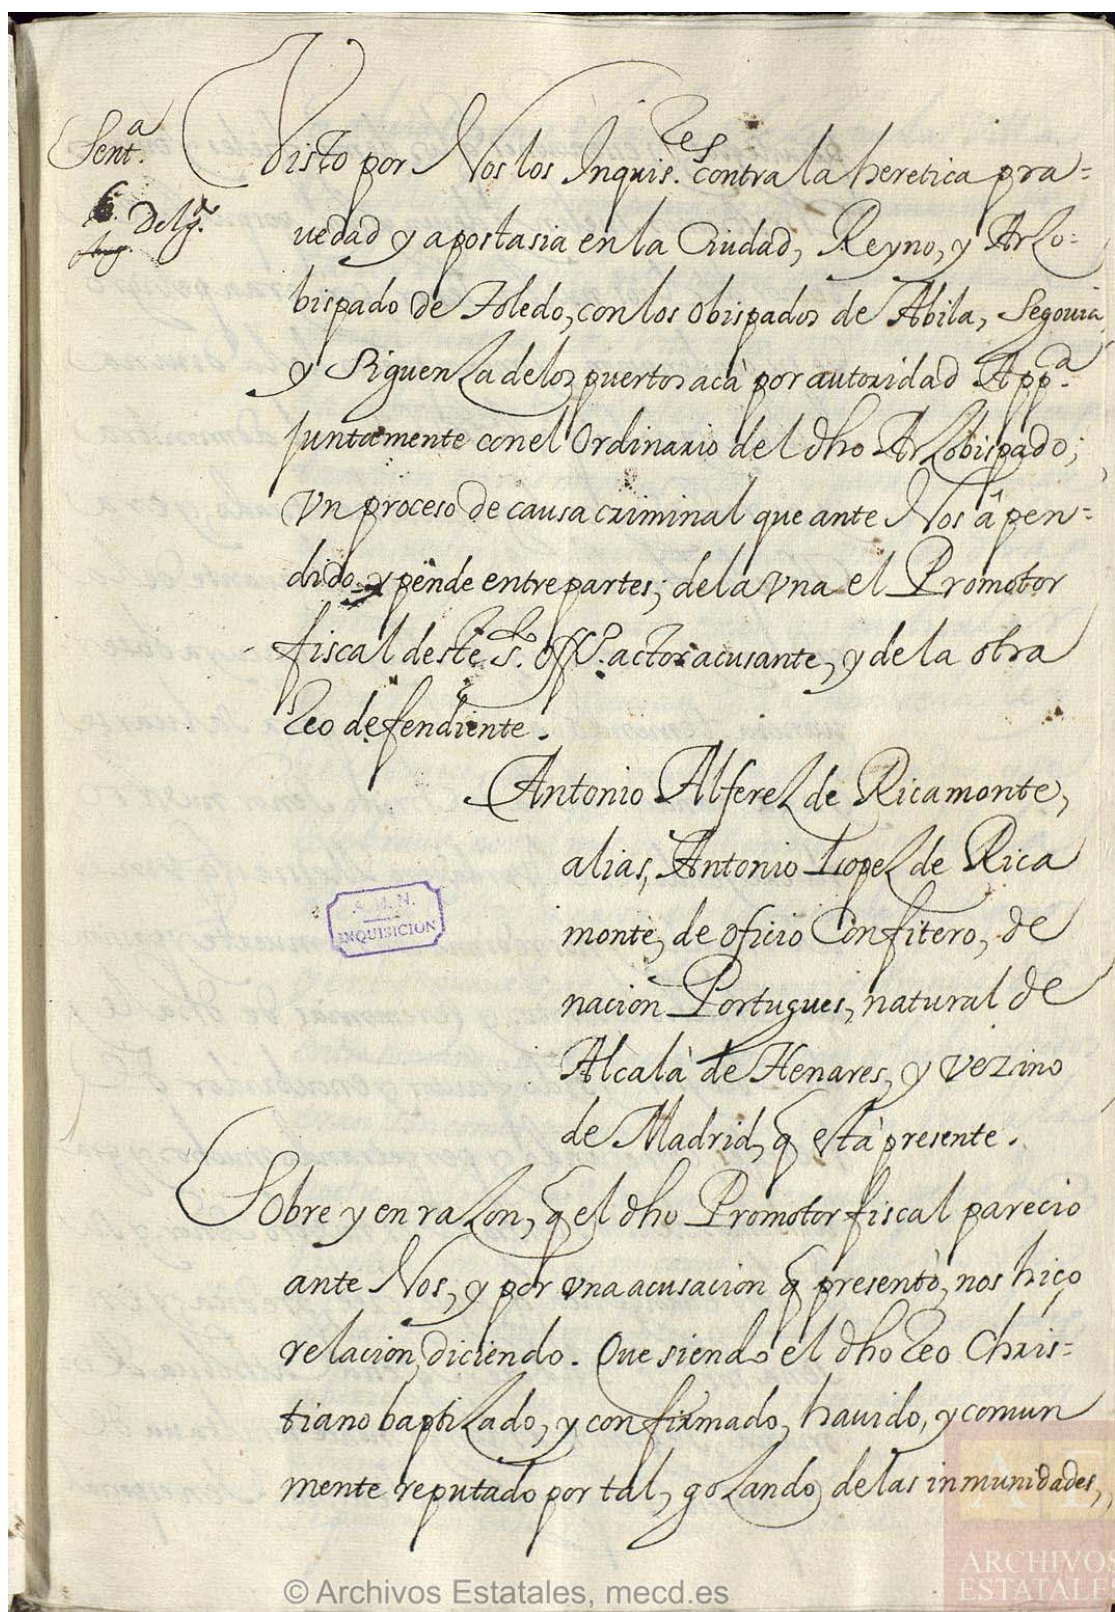 Sent.ª
Visto por Nos los Inquis.res contra la heretica pra=
Delg.
uedad y apostasia en la Ciudad, Reyno, y Arzo=
bispado de Toledo, con los obispados de Abila, Segouia
y Siguenza de los puertos acà por autoridad App.ª
juntamente con el Ordinario del dho Arzobispado;
vn proceso de causa criminal que ante Nos â pen=
dido y pende entre partes; de la vna el Promotor
fiscal deste S.to Off.º actor acusante, y de la otra
Reo defendiente.
Antonio Alferez de Ricamonte,
alias, Antonio Lopez de Rica
monte, de oficio Confitero, de
nacion Portugues, natural de
Alcalà de Henares, y vezino
de Madrid, q està presente.
Sobre y en razon, q el dho Promotor fiscal parecio
ante Nos, y por vna acusacion q presentò, nos hiço
relacion, diciendo. Que siendo el dho Reo Chris=
tiano baptizado, y confirmado, hauido, y comun
mente reputado por tal, gozando de las inmunidades,
A. H. N.
INQUISICION
© Archivos Estatales, mecd.es
ARCHIVOS
ESTATALES